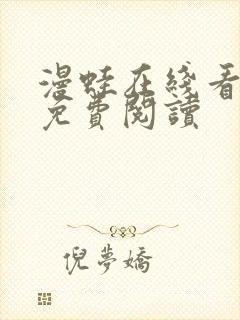 漫蛙在线看
免費閱讀
倪夢嬌